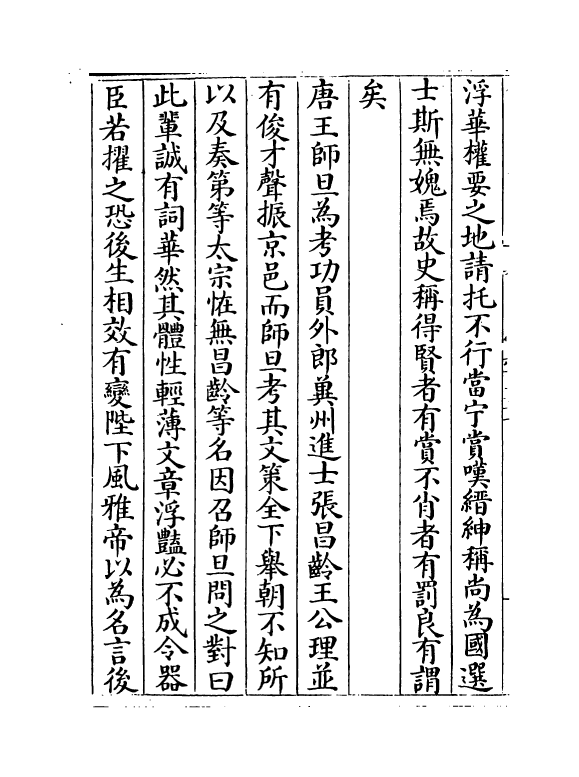 浮華權要之地請托不行當宁賞嘆縉紳稱尚為國選
士斯無媿焉故史稱得賢者有賞不肖者有罰良有謂
矣
唐王師旦為考功員外郎冀州進士張昌齡王公理並
有俊才聲振京邑而師旦考其文策全下舉朝不知所
以及奏第等太宗恠無昌齡等名因召師旦問之對曰
此輩誠有詞華然其體性輕薄文章浮豔必不成令器
臣若擢之恐後生相效有變陛下風雅帝以為名言後